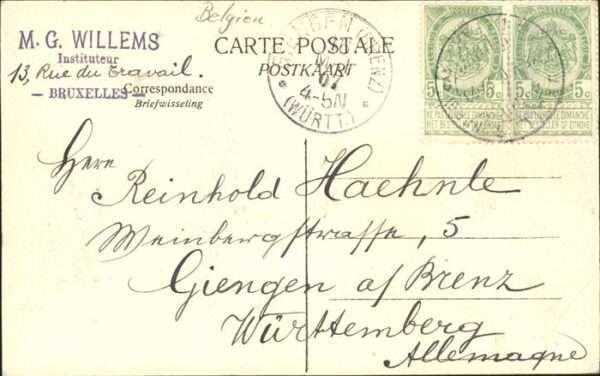 Belgien
M. G. WILLEMS
Instituteur
13, Rue du Travail.
— BRUXELLES —
CARTE POSTALE
POSTKAART
Correspondance
Briefwisseling
GIENGEN (BRENZ)
07
4-5N
(WÜRTT.)
5c 5c
5c 5c
NE PAS LIVRER LE DIMANCHE
Herr
Reinhold Haehnle
Weinbergstrasse, 5
Giengen a/ Brenz
Württemberg
Allemagne